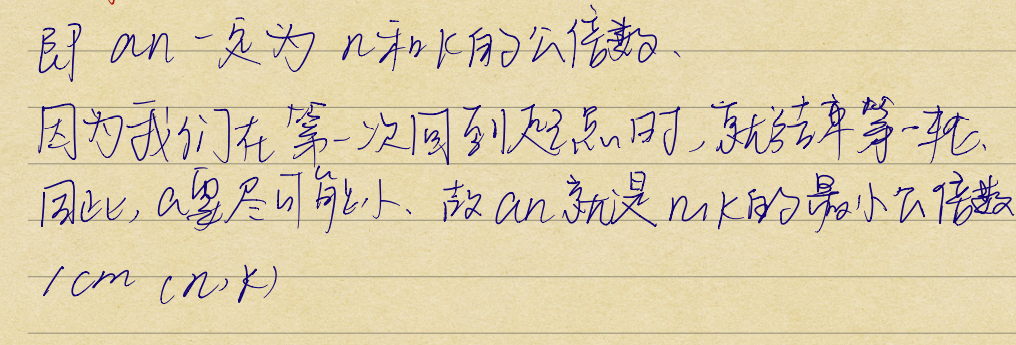 即 an 一定为 n和k的公倍数、
因为我们在第一次回到起点时，就结束第一轮、
因此，a要尽可能小、故 an 就是 n,k的最小公倍数
lcm (n,k)